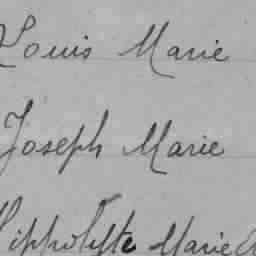 Louis Marie
Joseph Marie
Hippolyte Marie